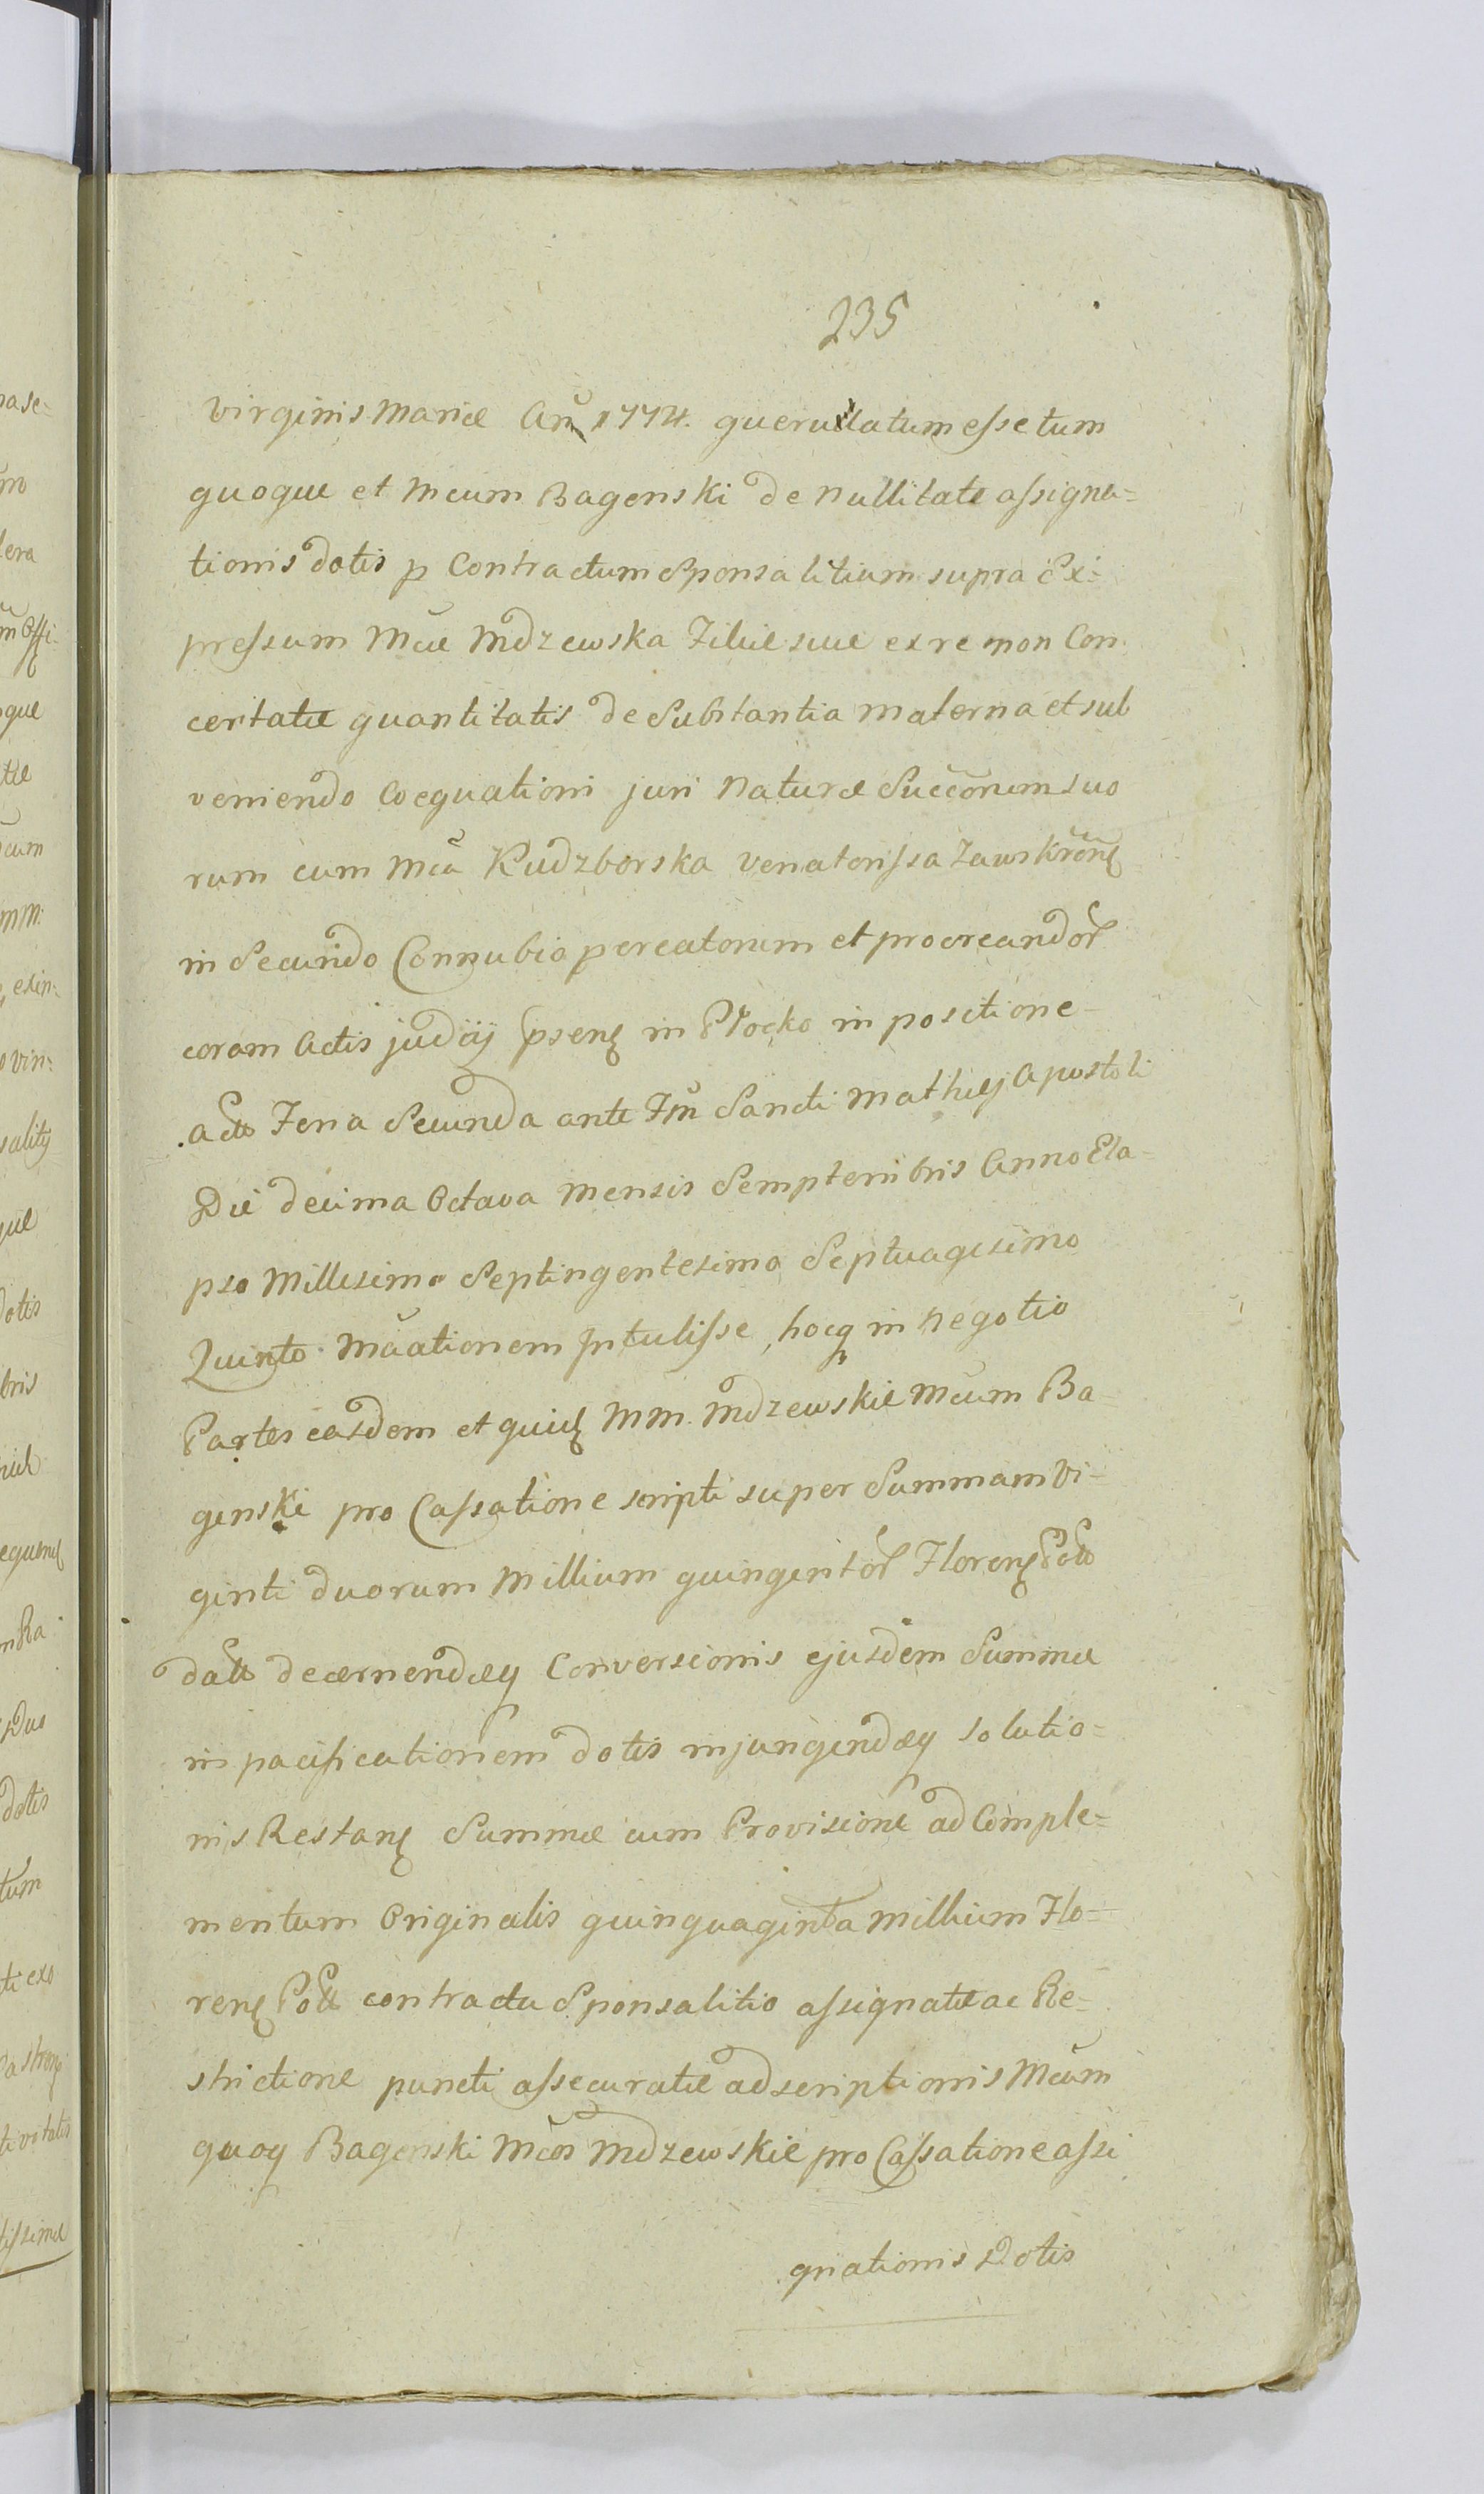 235
Virginis Mariæ Anũ 1774. querulatum esse tum
quoque et Mcum Bagenski de Nullitate assigna=
tionis dotis p Contractum Sponsalitium supra Ex=
pressum Mcæ Mdzewska Filiæ suæ ex re non Con
certatæ quantitatis de Substantia materna et sub
veniendo Coequationi juri Naturæ Succorum suo
rum cum Mca Rudzborska Venatorissa Zawskrönę
in Secundo Connubio pcreatorum et procreandor
coram Actis judcij pseng in Płocko in positione
actt Feria Secunda ante Fm Sancti Mathæj Apostoli
Die decima Octava Mensis Semptembris Anno Ela=
pso Millesimo Septingentesimo Septuagesimo
Quinto Mãationem Intulisse, hocq in negotio
Partes easdem et quid MM. Mdzewskie Mcum Ba
genski pro Cassatione scripti super Summam Vi=
ginti duorum Millium quingentor Floreng Poll
datt decernendæq Conversionis ejusdem Summæ
in pacificationem dotis injungendæq solutio=
nis Restang Summæ cum Provisione ad Comple=
mentum Originalis quinquaginta Millium Flo=
reng Poll contractu Sponsalitio assignatæ ac Re=
strictione puncti assecuratæ adscriptionis Mcum
quoq Bagenski Mcos Mdzewskie pro Cassatione assi
gnationis Dotis
pase=
mo
lera
m Offi=
oque
tæ
cum
MM:
exin:
o vin:
salitij
que
dotis
bris
equeng
m Ra
Duo
dotis
tum
ti exo
tivitatis
tissimæ